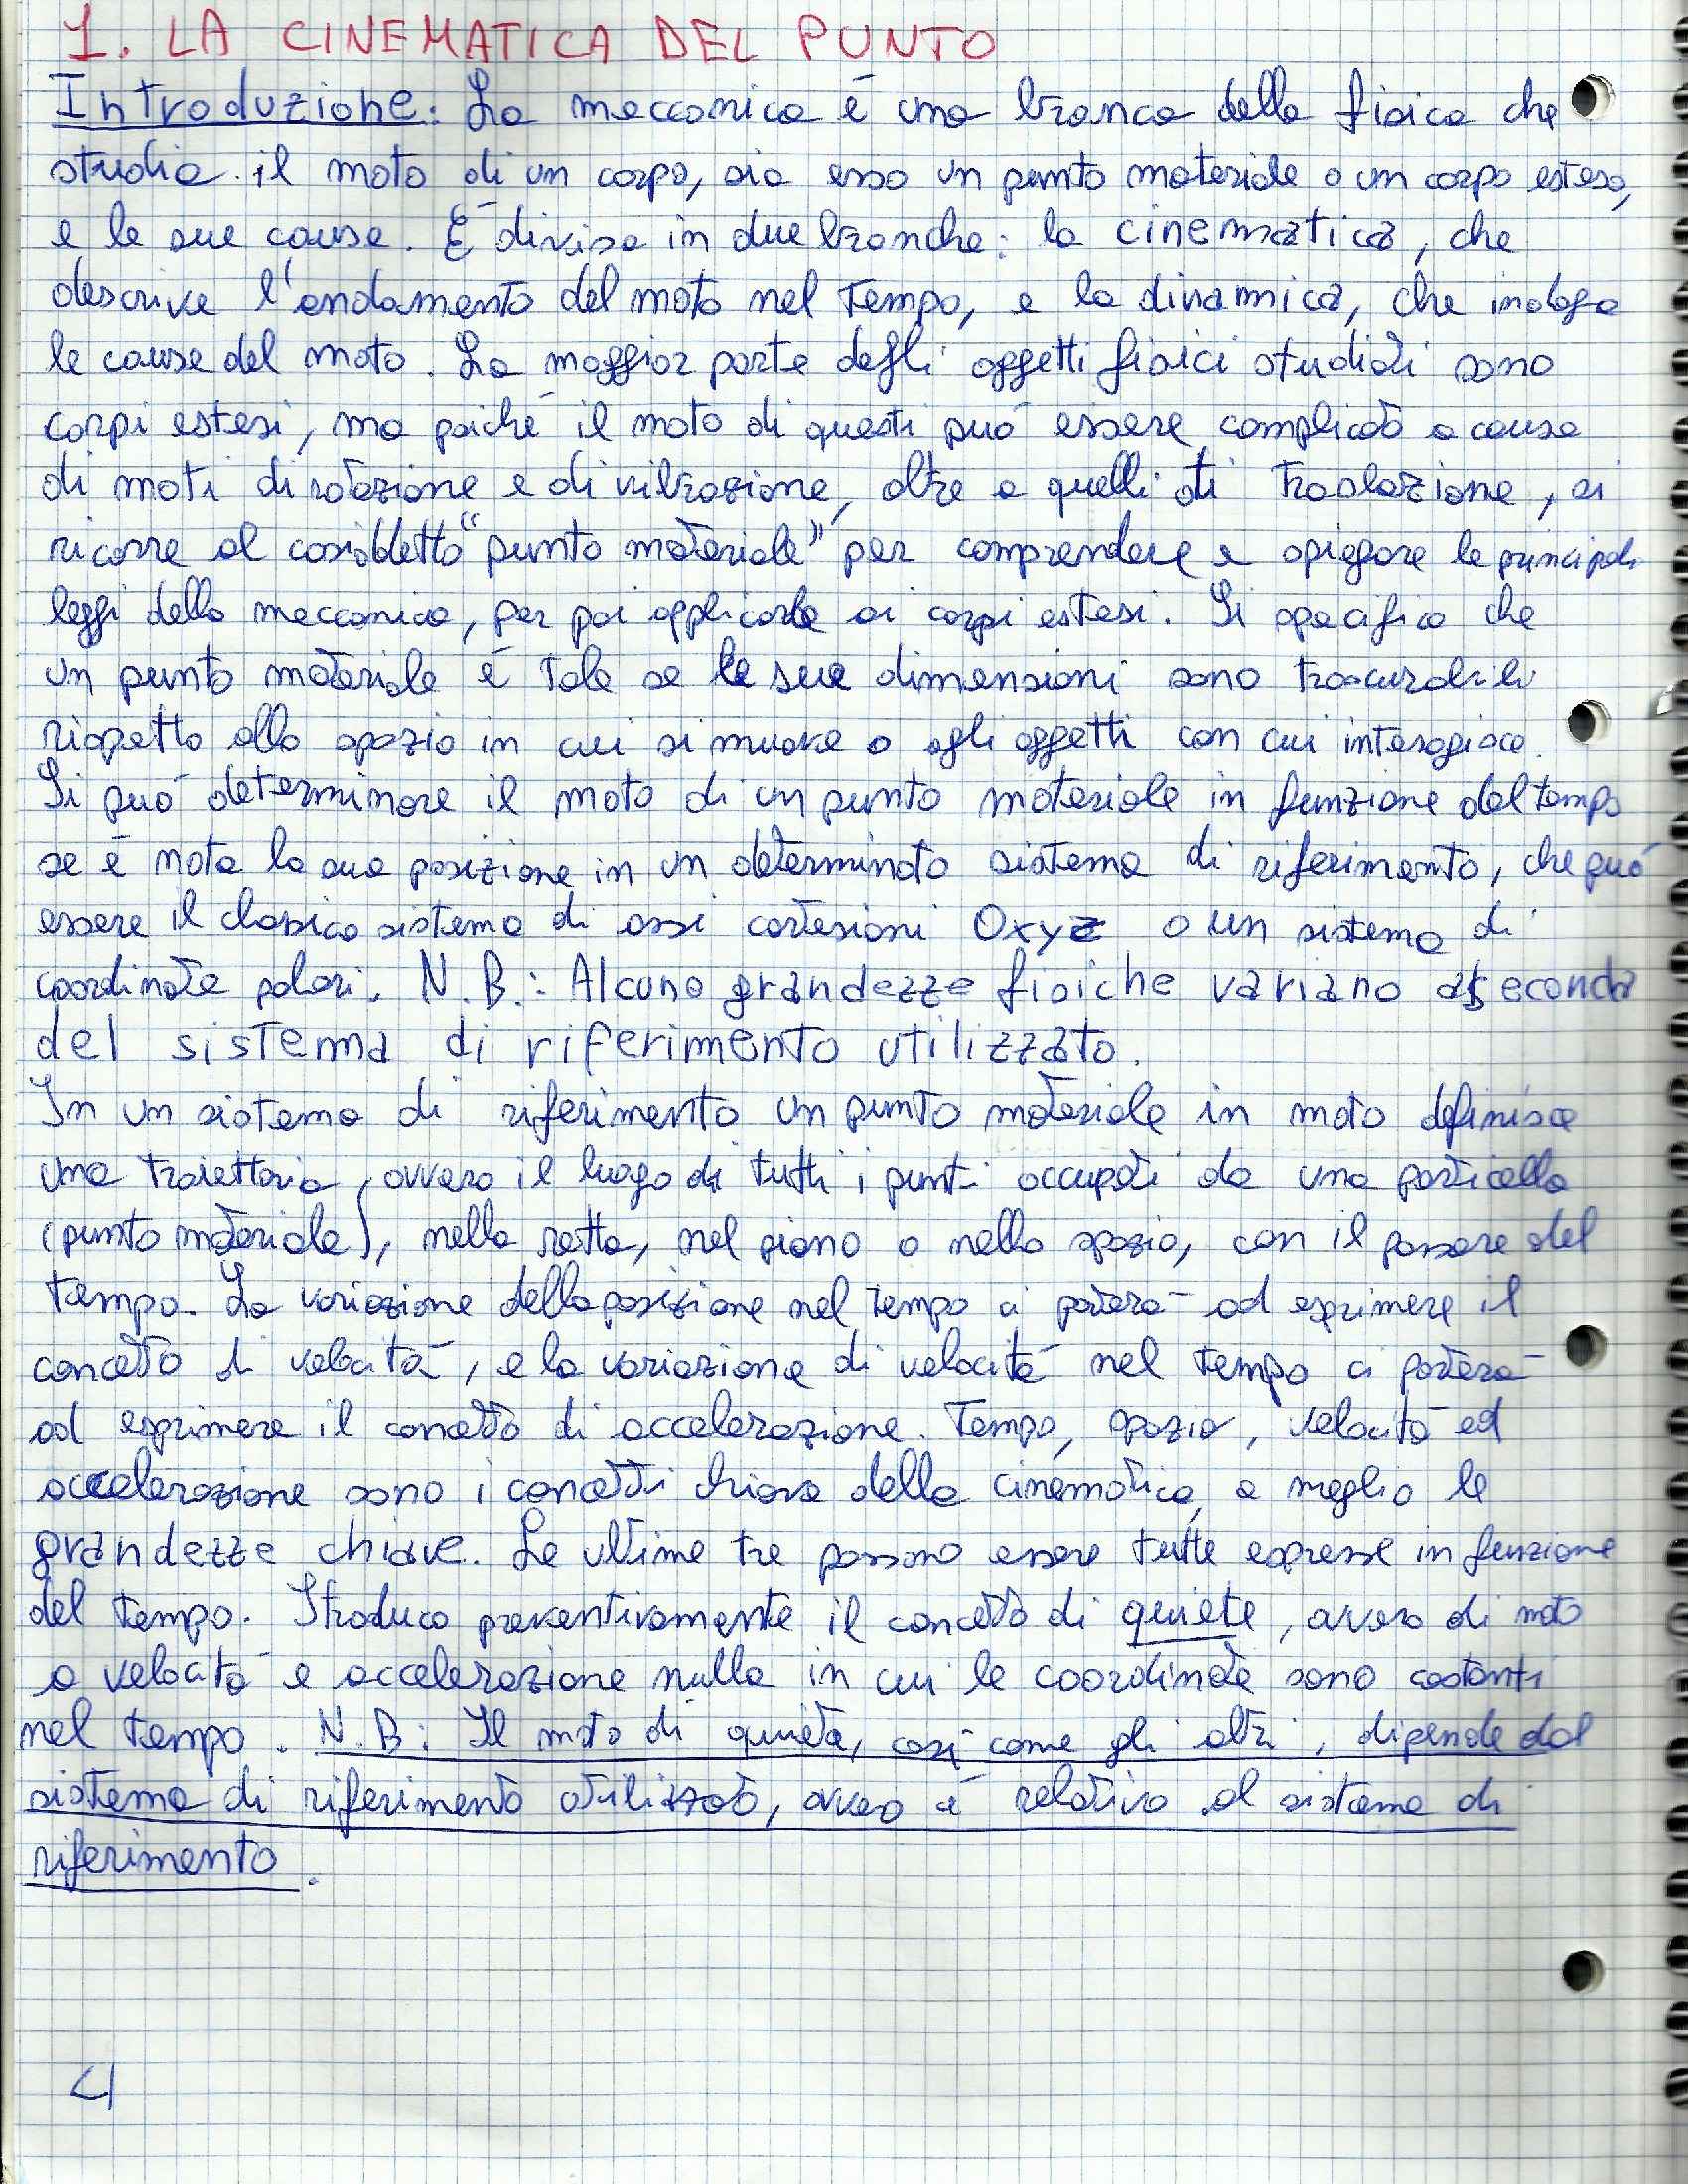 1. LA CINEMATICA DEL PUNTO
Introduzione: La meccanica é una branca della fisica che
studia il moto di un corpo, sia esso un punto materiale o un corpo esteso,
e le sue cause. É divisa in due branche: la cinematica, che
descrive l'andamento del moto nel tempo, e la dinamica, che indaga
le cause del moto. La maggior parte degli oggetti fisici studiati sono
corpi estesi, ma poiché il moto di questi puó essere complicato a causa
di moti di rotazione e di vibrazione, oltre a quelli di traslazione, si
ricorre al cosiddetto "punto materiale" per comprendere e spiegare le principali
leggi della meccanica, per poi applicarle ai corpi estesi. Si specifica che
un punto materiale é tale se le sue dimensioni sono trascurabili
rispetto allo spazio in cui si muove o agli oggetti con cui interagisce.
Si puó determinare il moto di un punto materiale in funzione del tempo
se é nota la sua posizione in un determinato sistema di riferimento, che puó
essere il classico sistema di assi cartesiani Oxyz o un sistema di
coordinate polari. N.B.: Alcune grandezze fisiche variano a seconda
del sistema di riferimento utilizzato.
In un sistema di riferimento un punto materiale in moto definisce
una traiettoria, ovvero il luogo di tutti i punti occupati da una particella
(punto materiale), nella retta, nel piano o nello spazio, con il passare del
tempo. La variazione della posizione nel tempo ci porterá ad esprimere il
concetto di velocitá, e la variazione di velocitá nel tempo ci porterá
ad esprimere il concetto di accelerazione. Tempo, spazio, velocitá ed
accelerazione sono i concetti chiave della cinematica, o meglio le
grandezze chiave. Le ultime tre possono essere tutte espresse in funzione
del tempo. Itroduco preventivamente il concetto di quiete, ovvero di moto
a velocitá e accelerazione nulla in cui le coordinate sono costanti
nel tempo. N.B: Il moto di quiete, cosí come gli altri, dipende dal
sistema di riferimento utilizzato, ovvero é relativo al sistema di
riferimento.
4